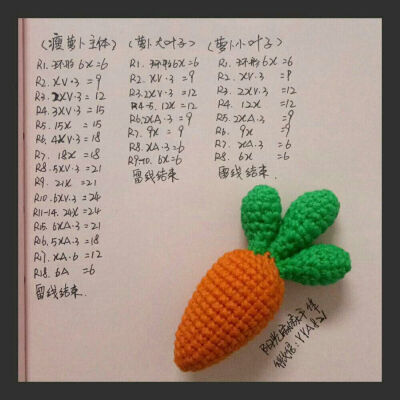 (瘦萝卜主体)
R1. 环形 6X =6
R2. XV·3 =9
R3. 2XV·3 =12
R4. 3XV·3 =15
R5. 15X =15
R6. 4XV·3 =18
R7. 18X =18
R8. 5XV·3 =21
R9. 21X =21
R10. 6XV·3 =24
R11-14. 24X =24
R15. 6XA·3 =21
R16. 5XA·3 =18
R17. XA·6 =12
R18. 6A =6
留线结束.
(萝卜大叶子)
R1. 环形 6X =6
R2. XV·3 =9
R3. 2XV·3 =12
R4-5. 12X =12
R6. 2XA·3 =9
R7. 9X =9
R8. XA·3 =6
R9-10. 6X =6
留线结束
(萝卜小叶子)
R1. 环形 6X =6
R2. XV·3 =9
R3. 2XV·3 =12
R4. 12X =12
R5. 2XA·3 =9
R6. 9X =9
R7. XA·3 =6
R8. 6X =6
留线结束.